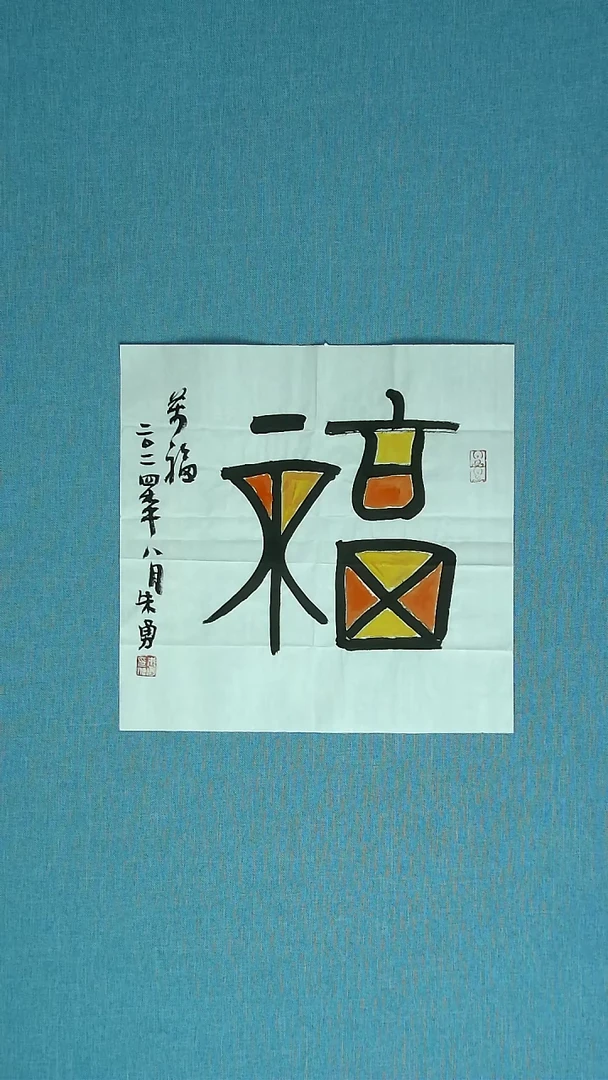 福
萬福
二〇二四年八月朱勇